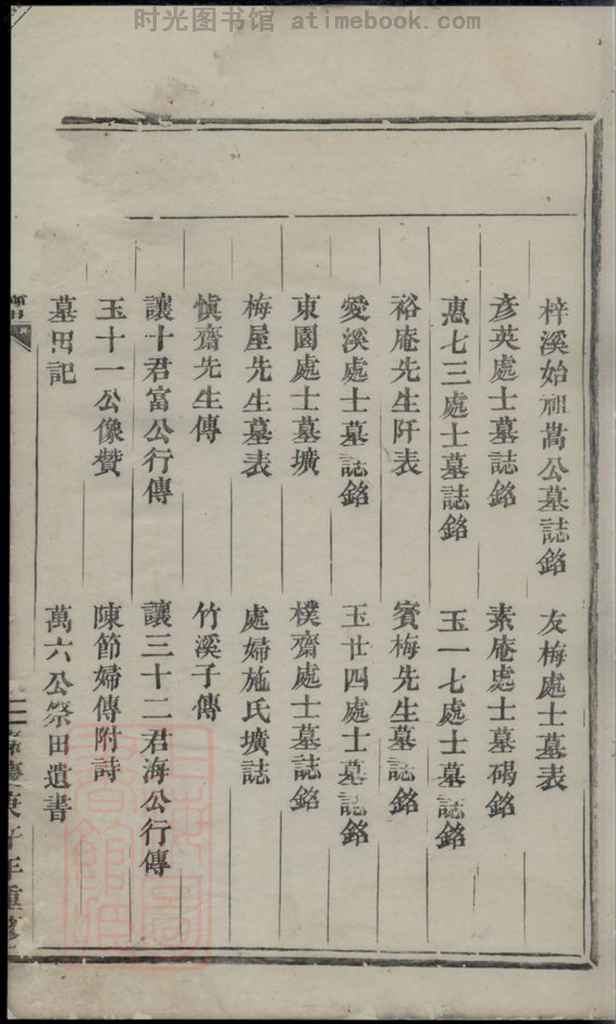 时光图书馆 atimebook.com
梓溪始祖蒿公墓誌銘
友梅處士墓表
彥英處士墓誌銘
素庵處士墓碣銘
惠七三處士墓誌銘
玉一七處士墓誌銘
裕庵先生阡表
賓梅先生墓誌銘
愛溪處士墓誌銘
玉廿四處士墓誌銘
東園處士墓壙
樸齋處士墓誌銘
梅屋先生墓表
處婦施氏壙誌
慎齋先生傳
竹溪子傳
讓十君富公行傳
讓三十二君海公行傳
玉十一公像贊
陳節婦傳附詩
墓田記
萬六公祭田遺書
年重修